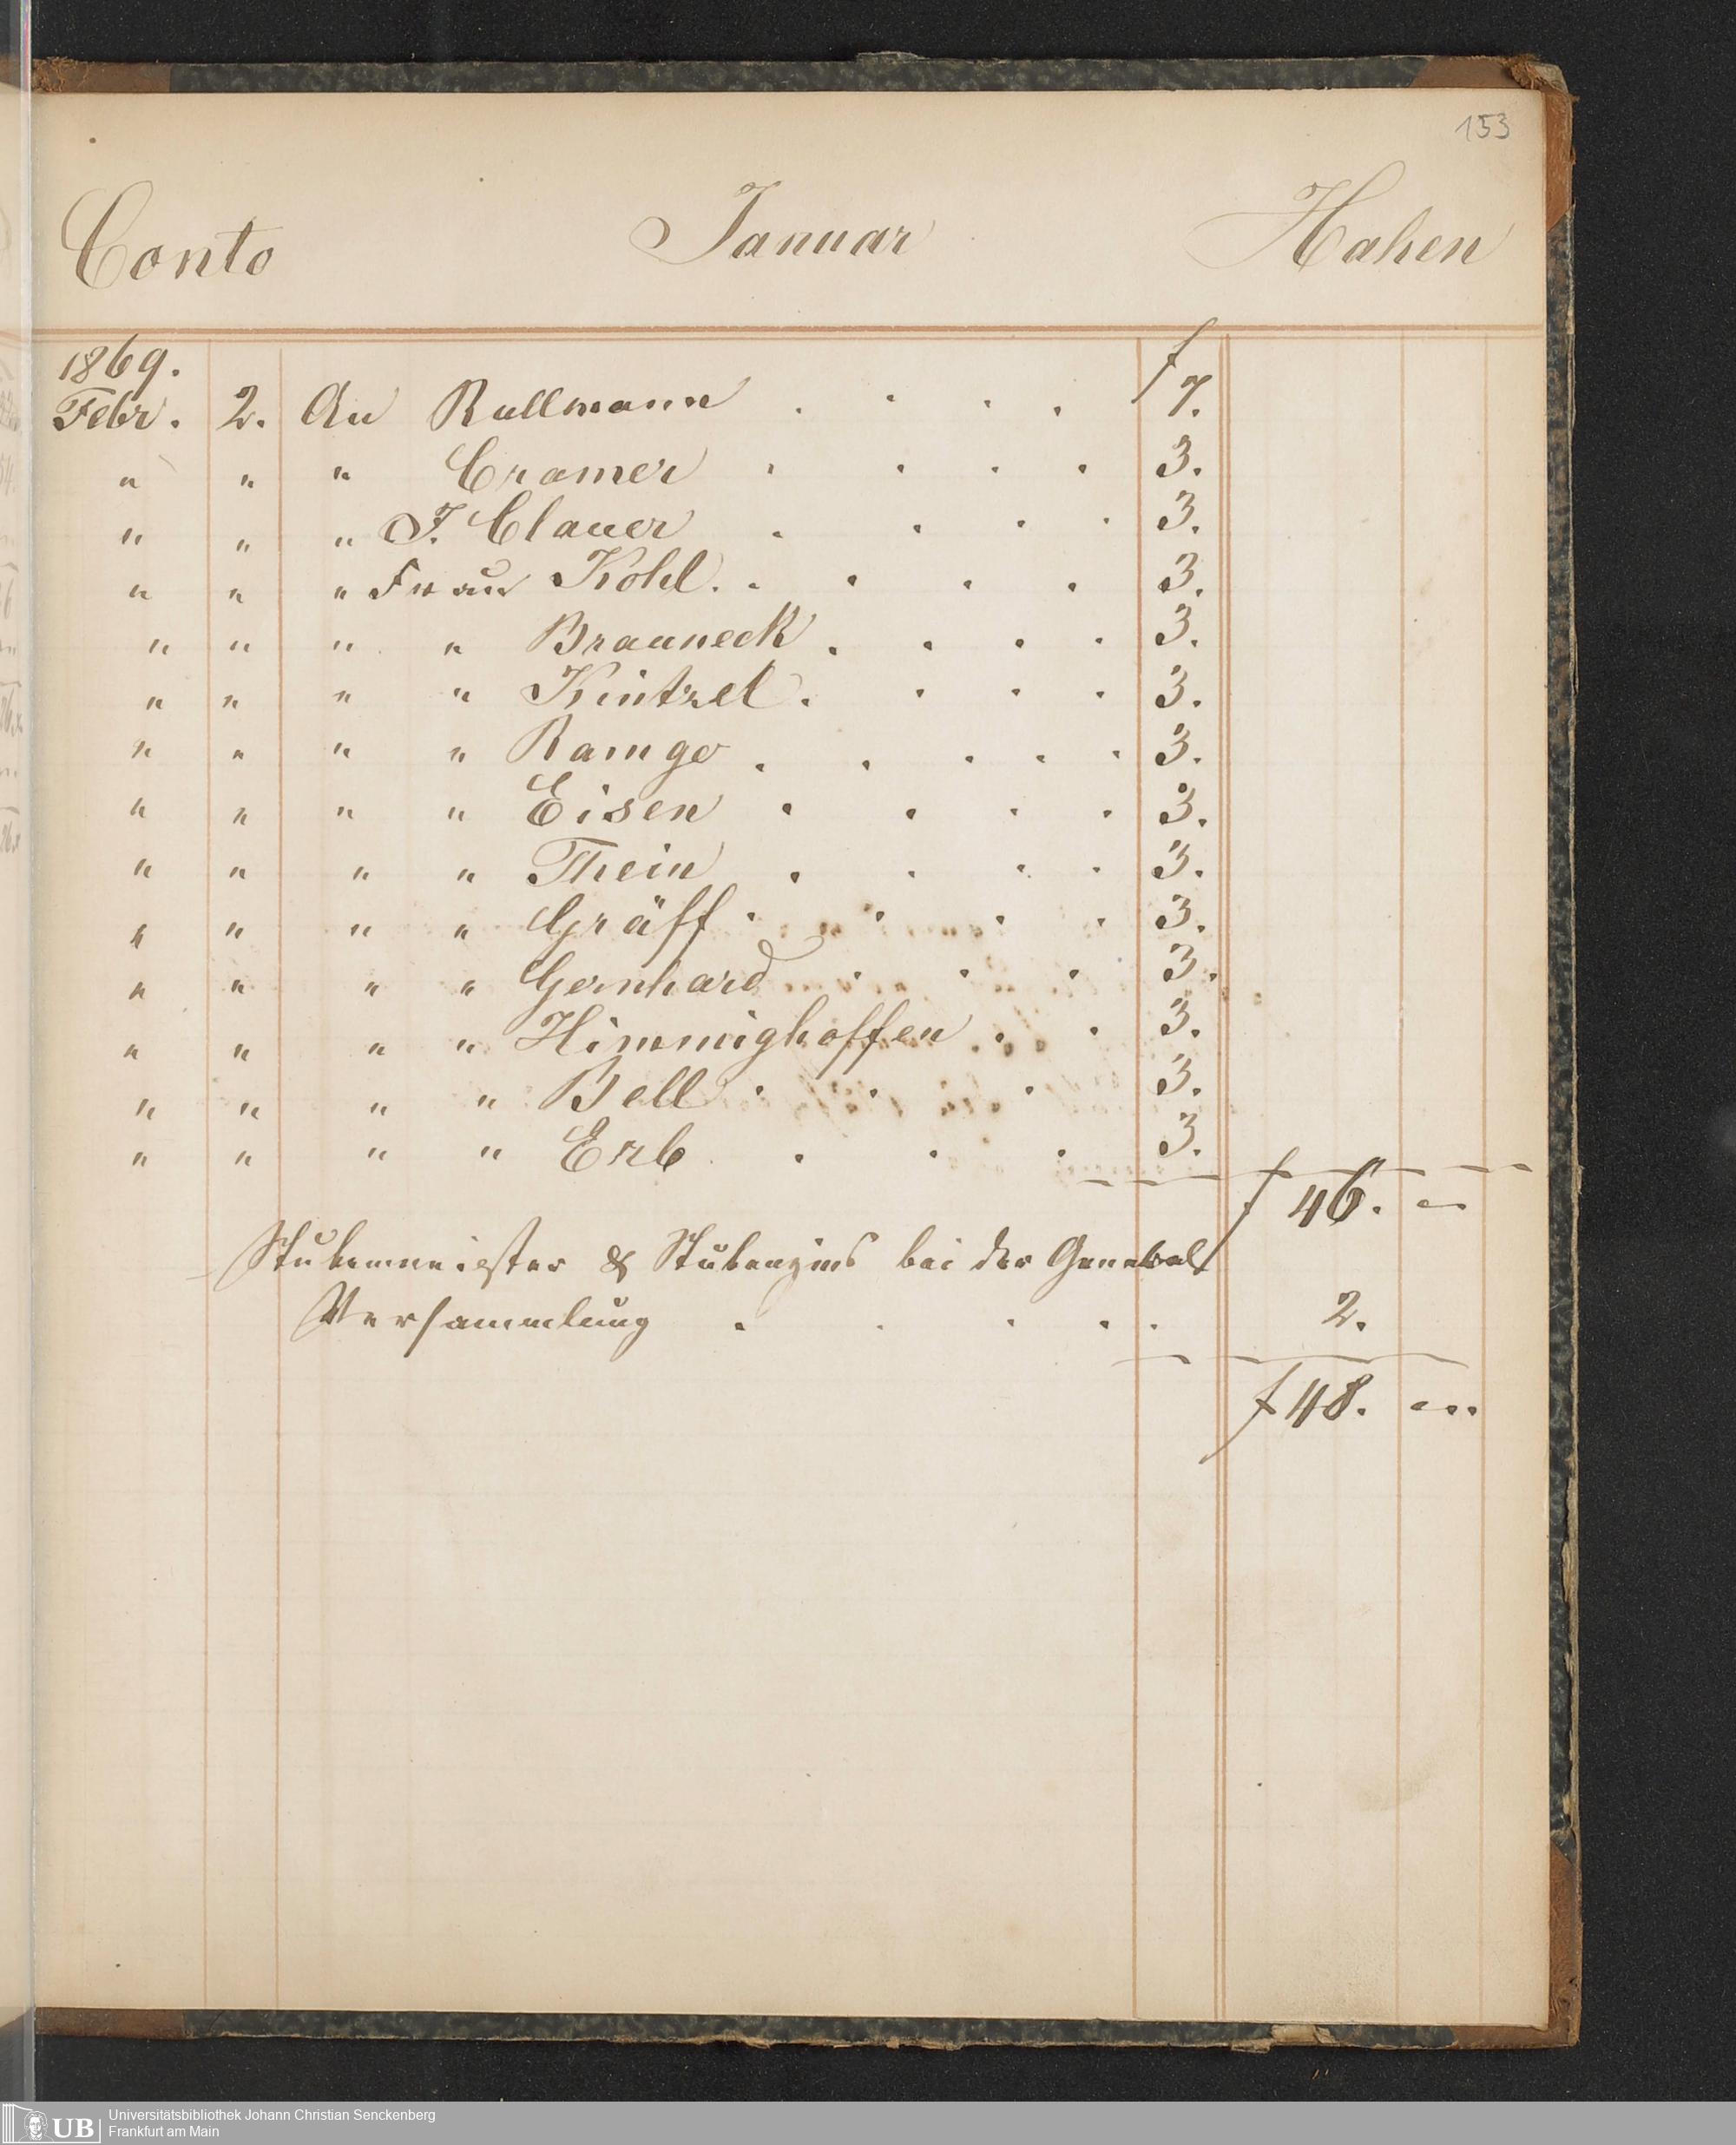 153
Conto Januar Hahen
1869. f
Febr. 2. An Rullmann . . . . 7.
" " " Cramer . . . . 3.
" " " J. Clauer . . . . 3.
" " " Frau Kohl. . . . . 3.
" " " " Brauneck . . . . 3.
" " " " Kintzel . . . . 3.
" " " " Ramge . . . . . 3.
" " " " Eisen . . . . 3.
" " " " Thein . . . . 3.
" " " " Gräff . . . . 3.
" " " " Gernhard . . . 3.
" " " " Himmighoffen . . 3.
" " " " Bell . . . 3.
" " " " Erb . . . 3.
f 46. —
Stubenmeister & Stubenzins bei der General
Versammlung . . . . . 2.
f 48. —
UB Universitätsbibliothek Johann Christian Senckenberg
Frankfurt am Main